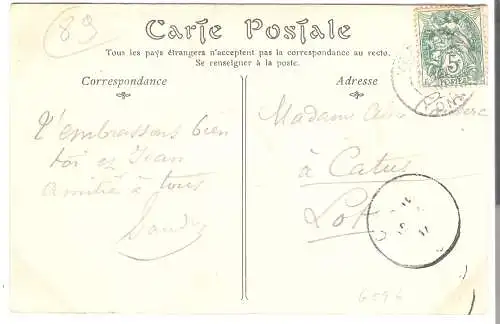 89
Carte Postale
Tous les pays étrangers n'acceptent pas la correspondance au recto.
Se renseigner à la poste.
Correspondance
Adresse
5
t'embrassons bien
toi et Jean
amitié à tous
Madame
à Catus
Lot
6596